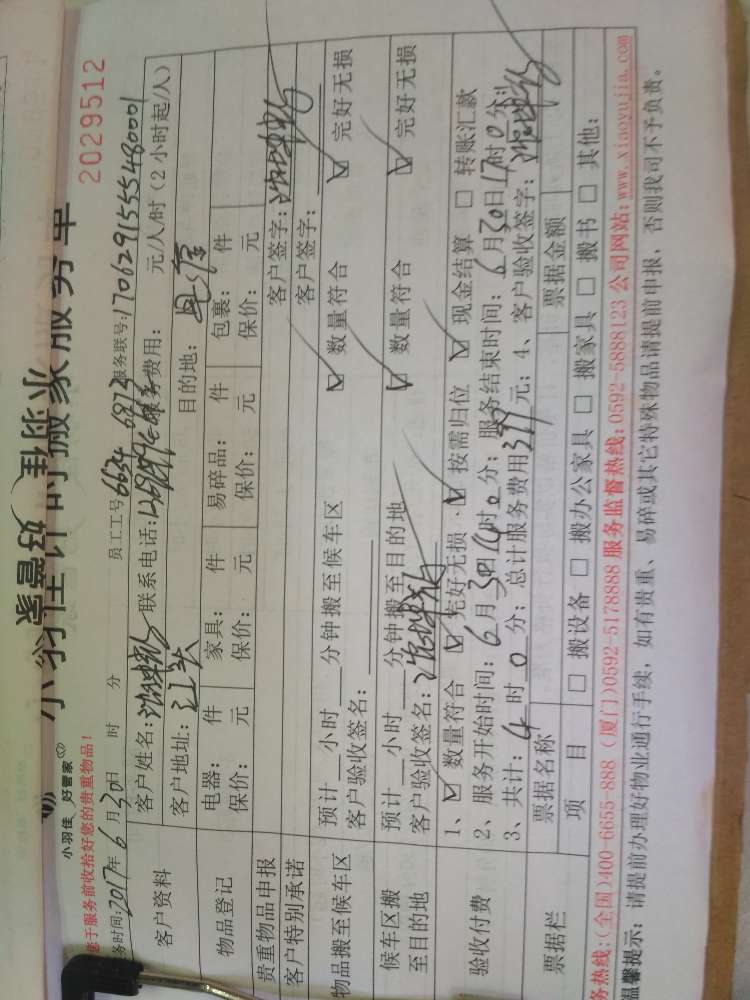 小羽佳 好管家
小羽佳计时搬家服务单
2029512
您于服务前收拾好您的贵重物品！
务时间：2017年6月30日 时 分 员工工号6634 6873 服务联号：1706291555480001
客户资料
客户姓名： 联系电话： 服务费用： 元/人/时（2小时起/人）
客户地址：江头 目的地：
物品登记
电器： 件 家具： 件 易碎品： 件 包裹： 件
保价： 元 保价： 元 保价： 元 保价： 元
贵重物品申报 客户签字：
客户特别承诺 客户签字：
物品搬至候车区
预计 小时 分钟搬至候车区 ☑ 数量符合 ☑ 完好无损
客户验收签名：
候车区搬至目的地
预计 小时 分钟搬至目的地 ☑ 数量符合 ☑ 完好无损
客户验收签名：
验收付费
1、☑ 数量符合 ☑ 完好无损 ☑ 按需归位 ☑ 现金结算 □ 转账汇款
2、服务开始时间：6月30日 时0分；服务结束时间：6月30日17时0分；
3、共计：4时0分；总计服务费用 元；4、客户验收签字：
票据栏
票据名称 票据金额
项 目 □ 搬设备 □ 搬办公家具 □ 搬家具 □ 搬书 □ 其他：
务热线：(全国)400-6655-888 (厦门)0592-5178888 服务监督热线：0592-5888123 公司网站：www.xiaoyujia.com
温馨提示：请提前办理好物业通行手续，如有贵重、易碎或其它特殊物品请提前申报，否则我司不予负责。